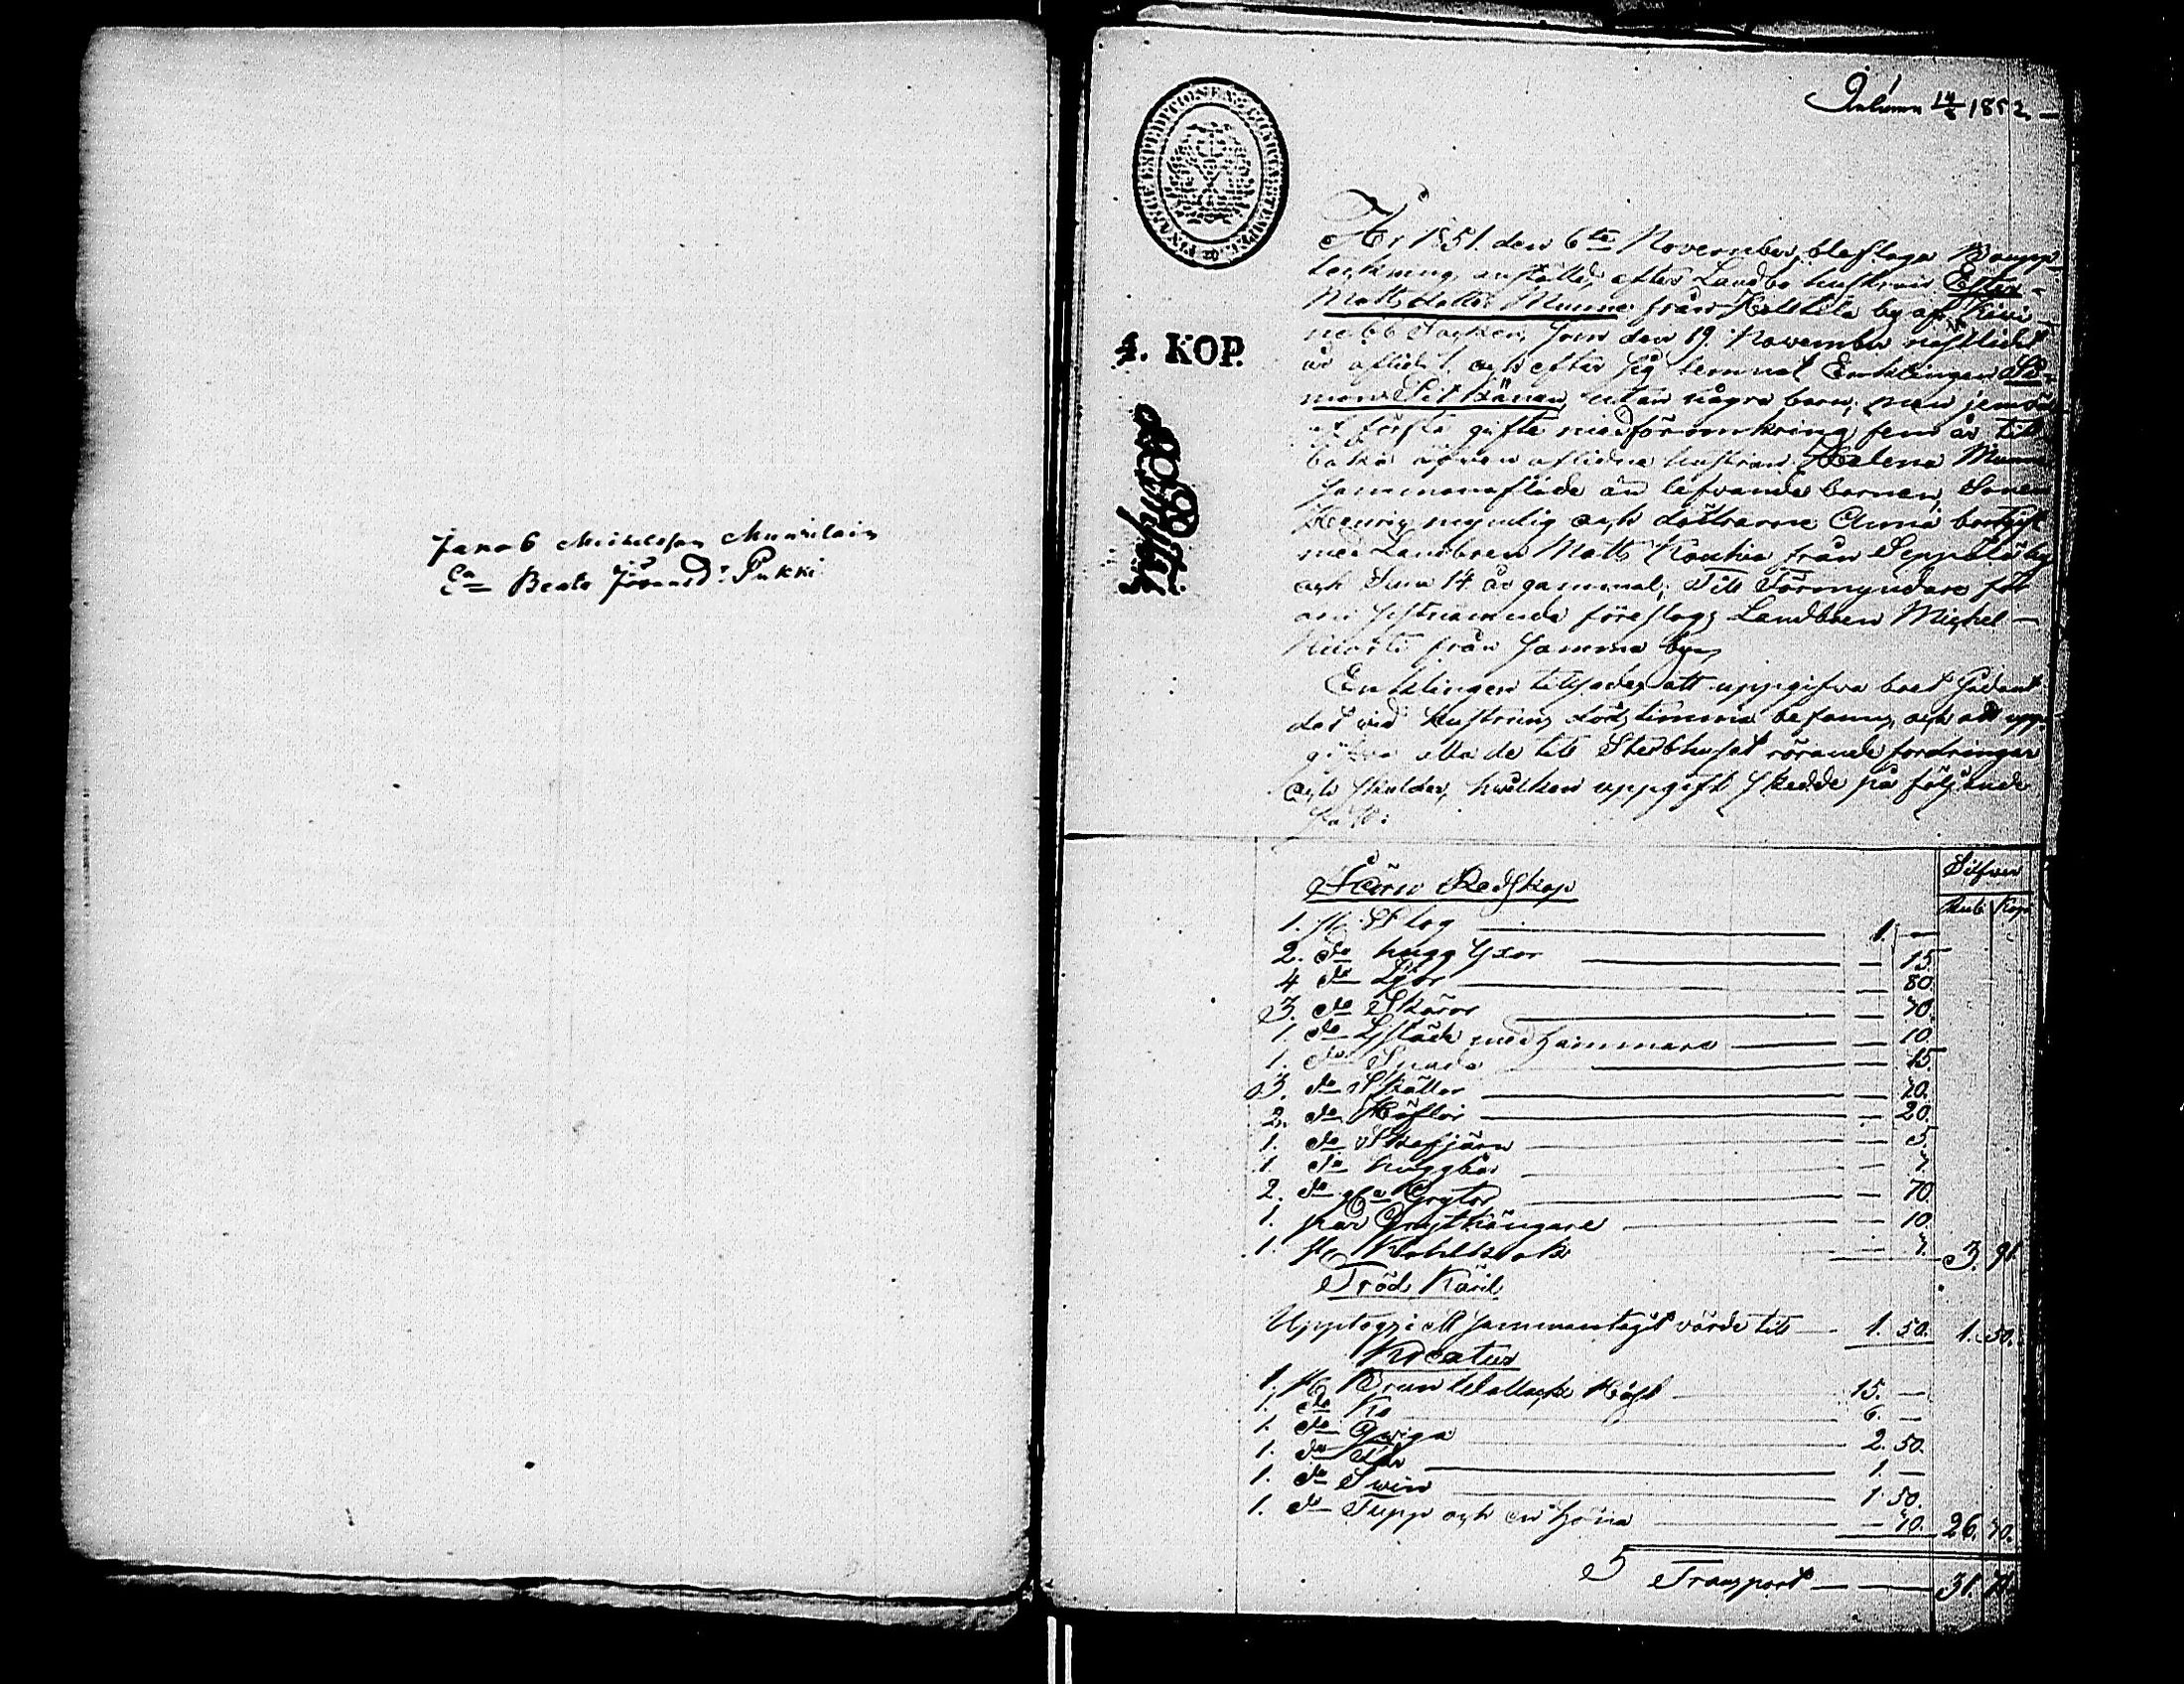 Jakob Michelsson Muurilain
Ea Beata Jöransdr Pukki
1852.
FINANCE EXPEDITIONENS CHARTÆ STEMPEL
4. KOP.
År 1851. den 6te November, blef laga Boupp-
teckning anstäld, efter Landbo hustrun Ester
Mattsdotter Munne från Holttila by af Kivi-
nebb Socken, som den 19. November nästlidit
år aflidit och efter sig lemnat Enklingen Si-
mon Pitkänen, utan några barn, men jemväl
i förste gifte med för omkring fem år till-
baka äfven aflidne hustrun Helena Munne
sammanaflade än lefvande barnen, Sonen
Henric myndig och döttrarne Anna bortgift
med Landboen Matts Koukia från Seppälä by
och 14 år gammal; Till Förmyndare för
den sistnämnde föreslogs Landboen Michel
från samma by,
Enklingen tillsades att uppgifva boet sådant
det vid hustruns döds timma befanns, och att upp-
gifva alla de till Sterbhuset rörande fordringar
och skulder, hvilken uppgift skedde på följande
sätt:
Silfver
Rub Kop
Järn Redskap
1. st. Plog 1. —
2. do hugg Yxor — 15.
4 do Liar — 80.
3. do Skäror — 70.
1. do Listäde med hammare — 10.
1. do Spada — 15.
3. do Skällor — 20.
2. do Höflor — 20.
1. do Skafjärn — 5.
1. do
2. do Grytor — 70.
1. par Grythängare — 10.
1. st. 7. 3. 91.
Träd Käril
Upptogs i ett sammantagit värde till 1. 50. 1. 50.
Kreatur
1. st. Brun Wallack Häst 15. —
1. do Ko 6. —
1. do Qwiga 2. 50.
1. do Får 1. —
1. do Swin 1. 50.
1. do Tupp och en höna — 70. 26. 70.
Transport 31.